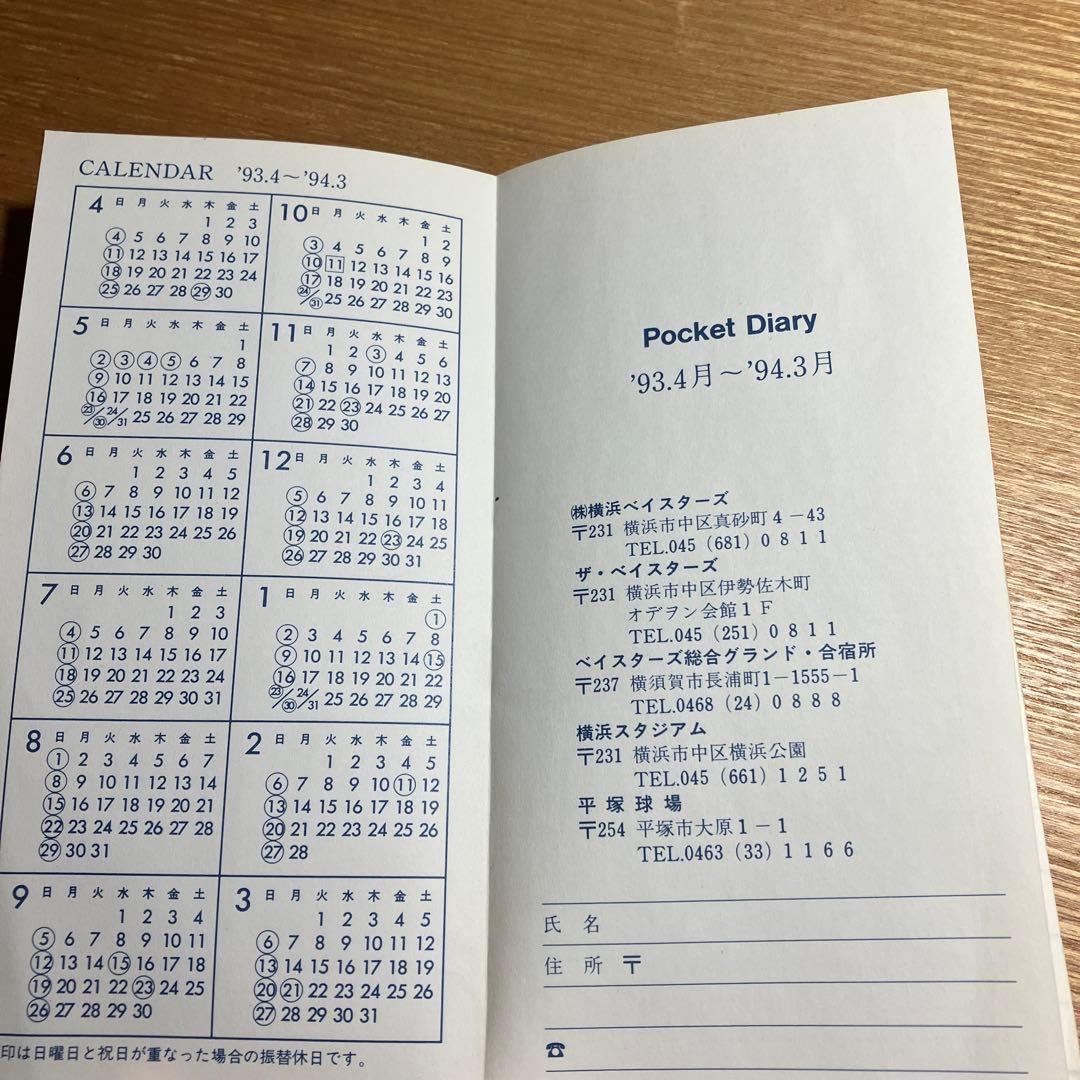 CALENDAR '93.4～'94.3
4 日 月 火 水 木 金 土
1 2 3
4 5 6 7 8 9 10
11 12 13 14 15 16 17
18 19 20 21 22 23 24
25 26 27 28 29 30
5 日 月 火 水 木 金 土
1
2 3 4 5 6 7 8
9 10 11 12 13 14 15
16 17 18 19 20 21 22
23/30 24/31 25 26 27 28 29
6 日 月 火 水 木 金 土
1 2 3 4 5
6 7 8 9 10 11 12
13 14 15 16 17 18 19
20 21 22 23 24 25 26
27 28 29 30
7 日 月 火 水 木 金 土
1 2 3
4 5 6 7 8 9 10
11 12 13 14 15 16 17
18 19 20 21 22 23 24
25 26 27 28 29 30 31
8 日 月 火 水 木 金 土
1 2 3 4 5 6 7
8 9 10 11 12 13 14
15 16 17 18 19 20 21
22 23 24 25 26 27 28
29 30 31
9 日 月 火 水 木 金 土
1 2 3 4
5 6 7 8 9 10 11
12 13 14 15 16 17 18
19 20 21 22 23 24 25
26 27 28 29 30
10 日 月 火 水 木 金 土
1 2
3 4 5 6 7 8 9
10 11 12 13 14 15 16
17 18 19 20 21 22 23
24/31 25 26 27 28 29 30
11 日 月 火 水 木 金 土
1 2 3 4 5 6
7 8 9 10 11 12 13
14 15 16 17 18 19 20
21 22 23 24 25 26 27
28 29 30
12 日 月 火 水 木 金 土
1 2 3 4
5 6 7 8 9 10 11
12 13 14 15 16 17 18
19 20 21 22 23 24 25
26 27 28 29 30 31
1 日 月 火 水 木 金 土
1
2 3 4 5 6 7 8
9 10 11 12 13 14 15
16 17 18 19 20 21 22
23/30 24/31 25 26 27 28 29
2 日 月 火 水 木 金 土
1 2 3 4 5
6 7 8 9 10 11 12
13 14 15 16 17 18 19
20 21 22 23 24 25 26
27 28
3 日 月 火 水 木 金 土
1 2 3 4 5
6 7 8 9 10 11 12
13 14 15 16 17 18 19
20 21 22 23 24 25 26
27 28 29 30 31
印は日曜日と祝日が重なった場合の振替休日です。
Pocket Diary
'93.4月～'94.3月
㈱横浜ベイスターズ
〒231 横浜市中区真砂町4-43
TEL.045 (681) 0811
ザ・ベイスターズ
〒231 横浜市中区伊勢佐木町
オデヲン会館1F
TEL.045 (251) 0811
ベイスターズ総合グランド・合宿所
〒237 横須賀市長浦町1-1555-1
TEL.0468 (24) 0888
横浜スタジアム
〒231 横浜市中区横浜公園
TEL.045 (661) 1251
平塚球場
〒254 平塚市大原1-1
TEL.0463 (33) 1166
氏 名
住 所 〒
☎